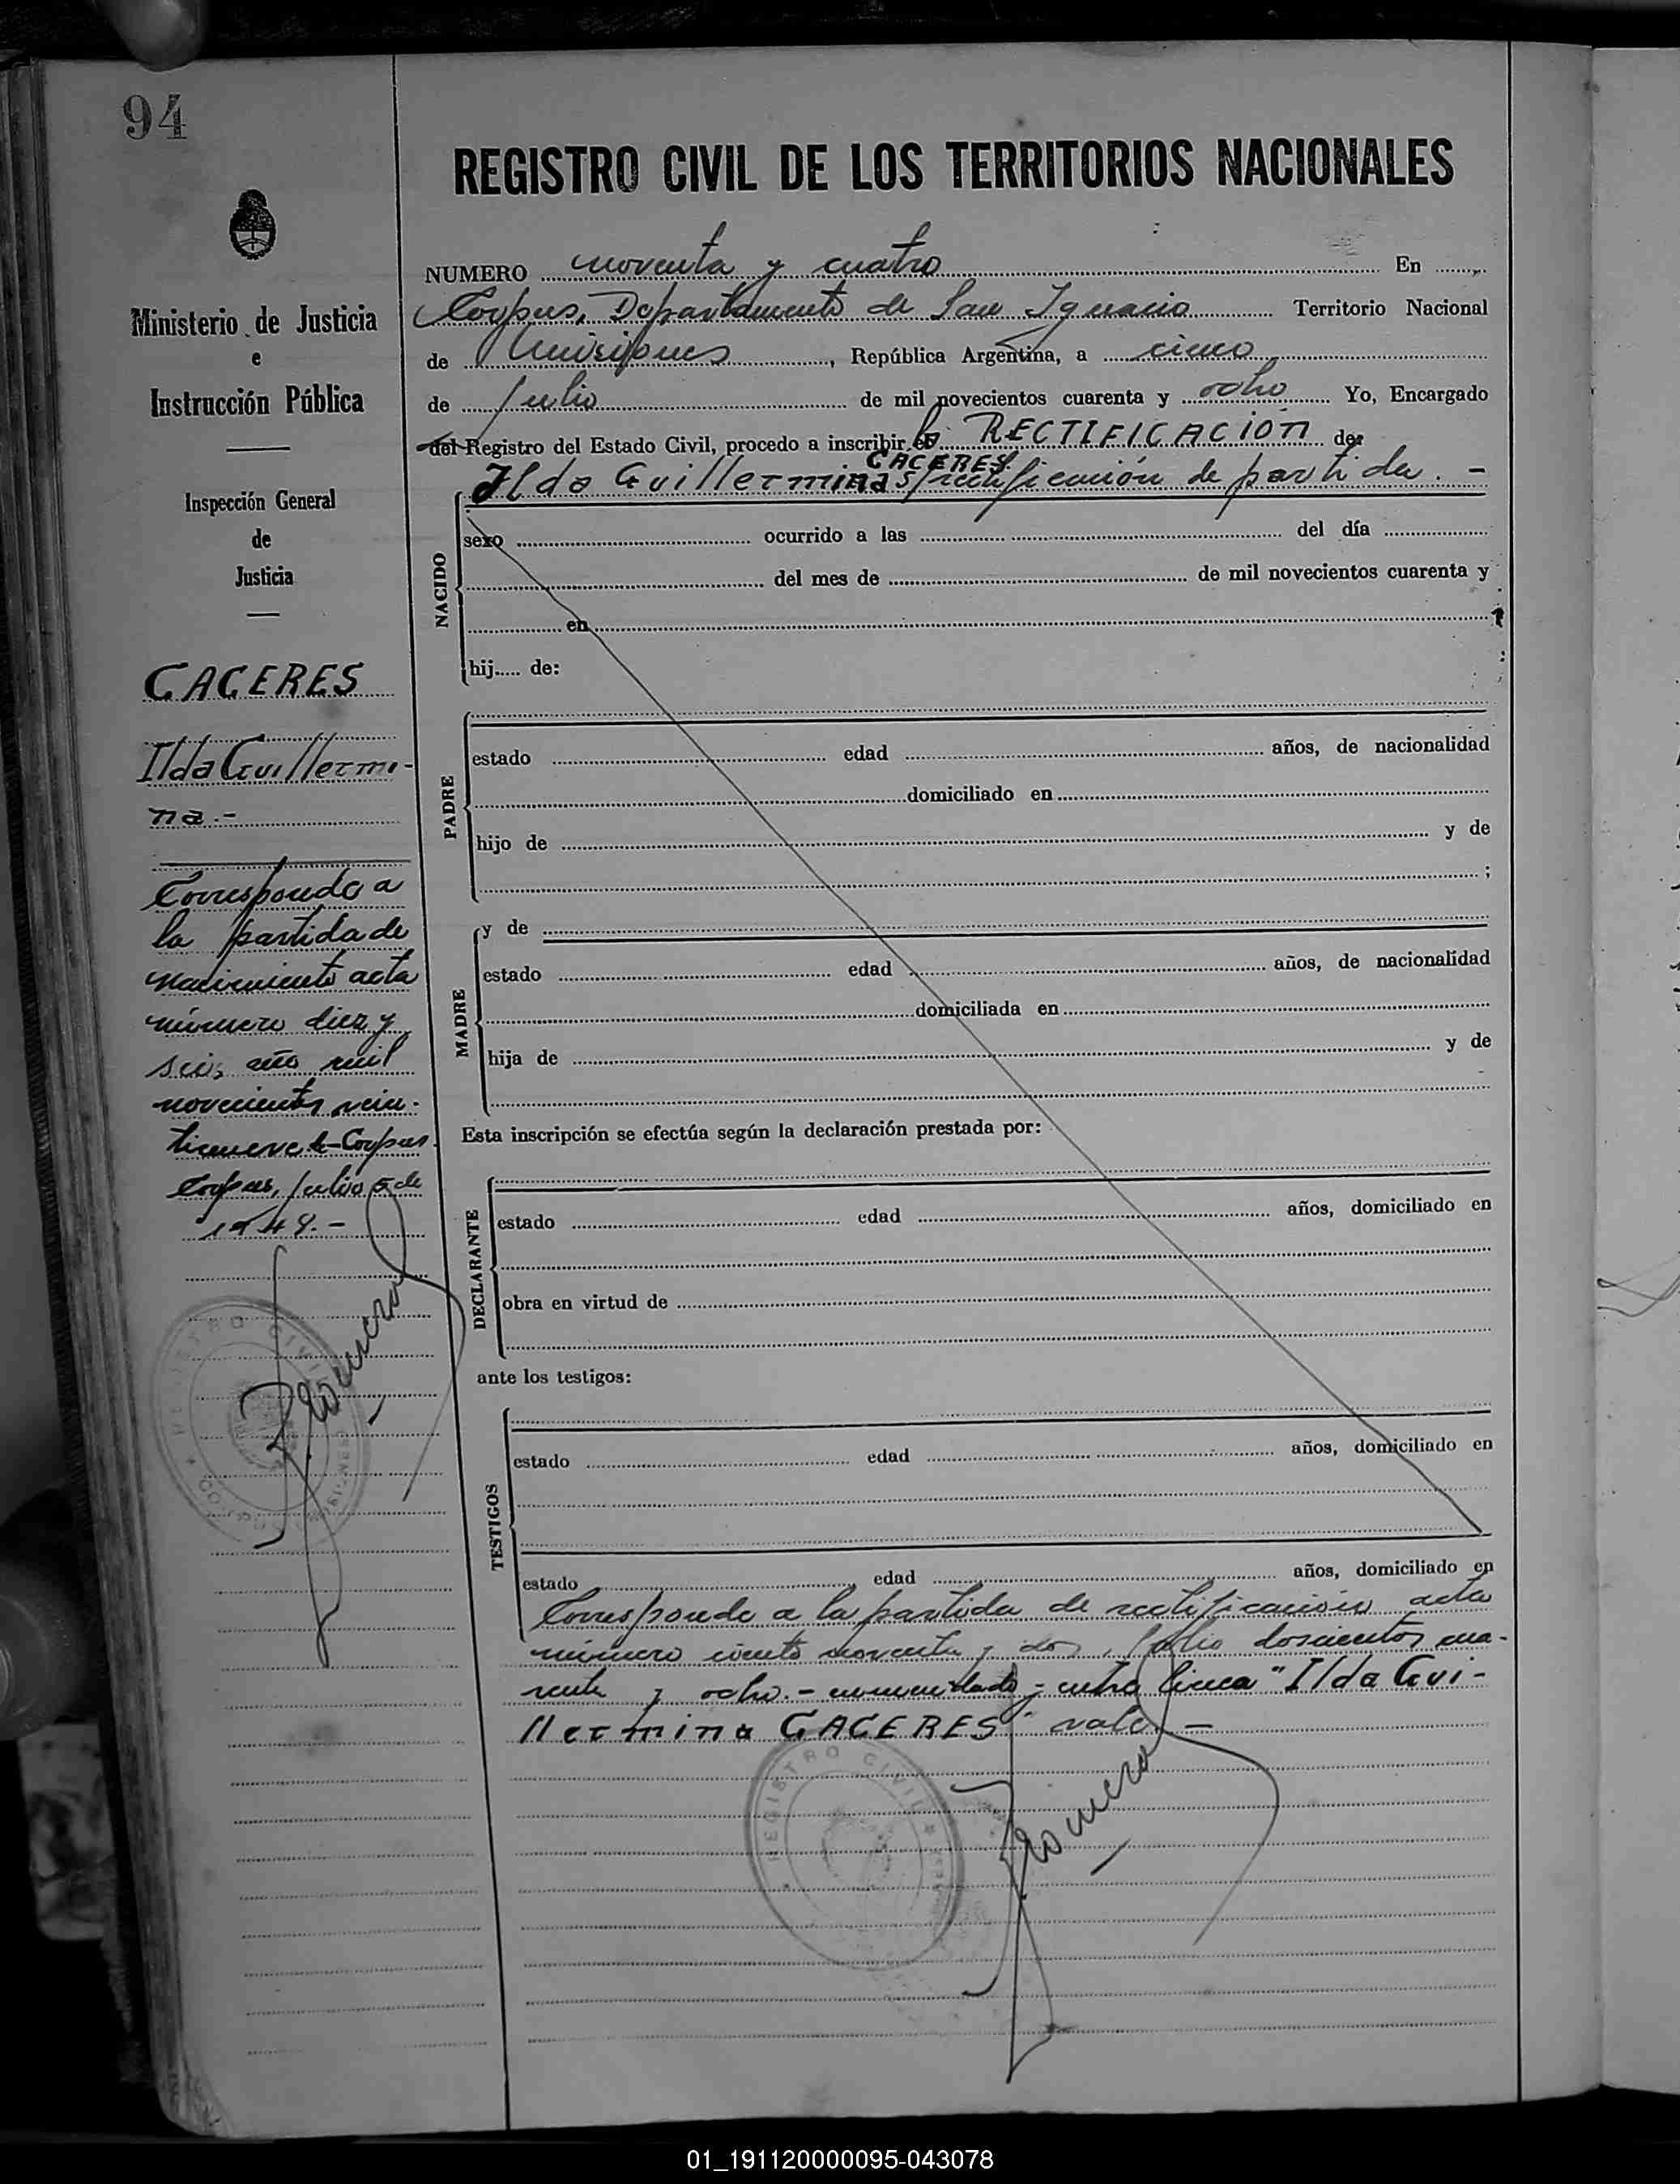 94
REGISTRO CIVIL DE LOS TERRITORIOS NACIONALES
Ministerio de Justicia
e
Instrucción Pública
Inspección General
de
Justicia
CACERES
Ilda Guillermi-
na.-
Corresponde a
la partida de
nacimiento acta
número diez y
seis, año mil
novecientos vein-
tinueve.- Corpus.
Corpus, Julio 5 de
1948.-
Romero
REGISTRO CIVIL
NUMERO noventa y cuatro En
Corpus, Departamento de San Ignacio Territorio Nacional
de Misiones, República Argentina, a cinco
de Julio de mil novecientos cuarenta y ocho Yo, Encargado
del Registro del Estado Civil, procedo a inscribir la RECTIFICACIÓN de
CACERES
Ilda Guillermina s/rectificación de partida. -
NACIDO
sexo ocurrido a las del día
del mes de de mil novecientos cuarenta y
en
hij de:
PADRE
estado edad años, de nacionalidad
domiciliado en
hijo de y de
;
MADRE
y de
estado edad años, de nacionalidad
domiciliada en
hija de y de
Esta inscripción se efectúa según la declaración prestada por:
DECLARANTE
estado edad años, domiciliado en
obra en virtud de
ante los testigos:
TESTIGOS
estado edad años, domiciliado en
estado edad años, domiciliado en
Corresponde a la partida de rectificación acta
número ciento noventa y dos, folio doscientos cua-
renta y ocho.- enmendado y entre linea "Ilda Gui-
llermina CACERES" vale. -
REGISTRO CIVIL
Romero
01_191120000095-043078